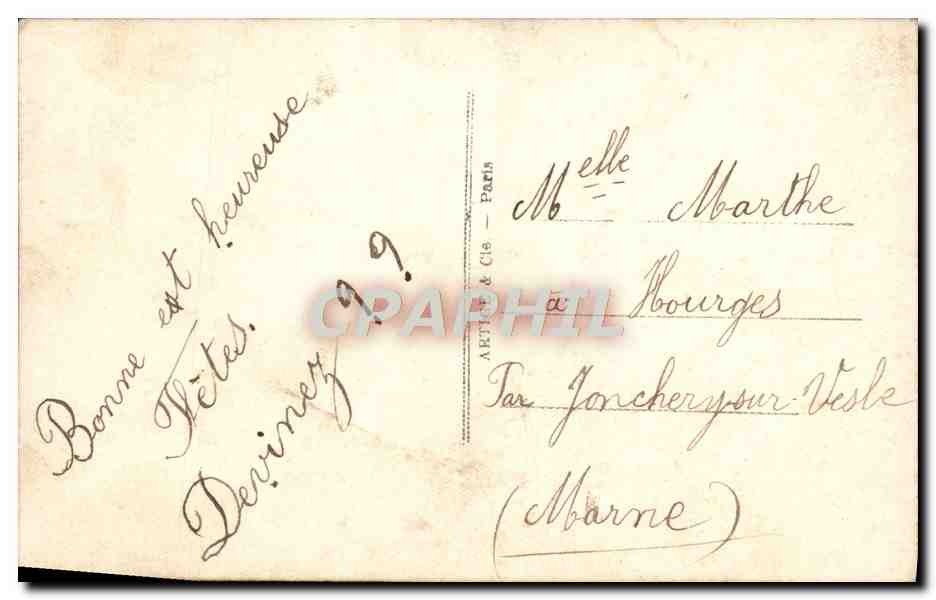 Bonne ext heureuse
Fêtes.
Devinez ? ?
ARTIGE & Cie — Paris
Melle Marthe
à Hourges
Par Jonchery sur Vesle
(Marne)
CPAPHIL